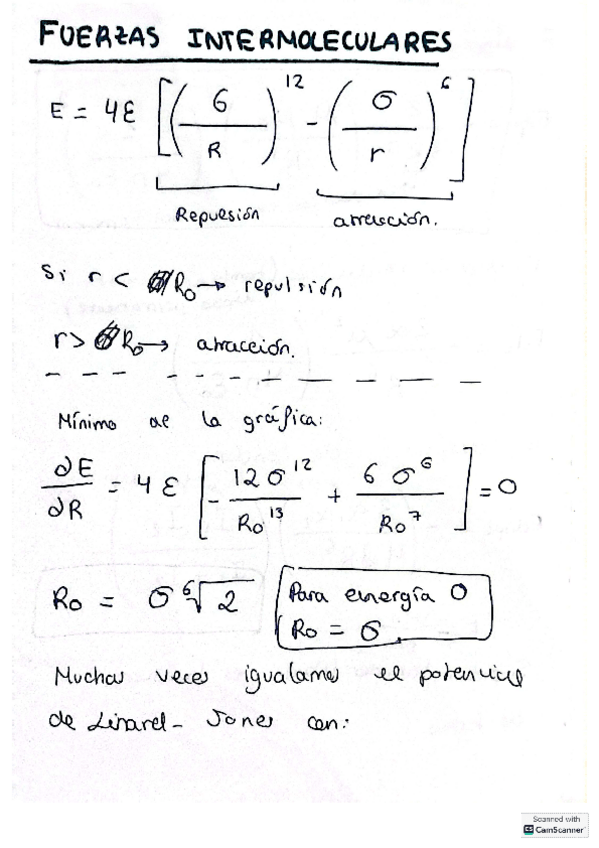 FUERZAS INTERMOLECULARES
E = 4ε [(σ/R)^12 - (σ/r)^6]
Repulsión atracción.
Si r < R₀ → repulsión
r > R₀ → atracción.
Mínimo de la gráfica:
∂E/∂R = 4ε [-12σ^12/R₀^13 + 6σ^6/R₀^7] = 0
R₀ = σ ⁶√2
Para energía 0
R₀ = σ.
Muchas veces igualamos el potencial
de Linarel-Jones con:
Scanned with
CS CamScanner